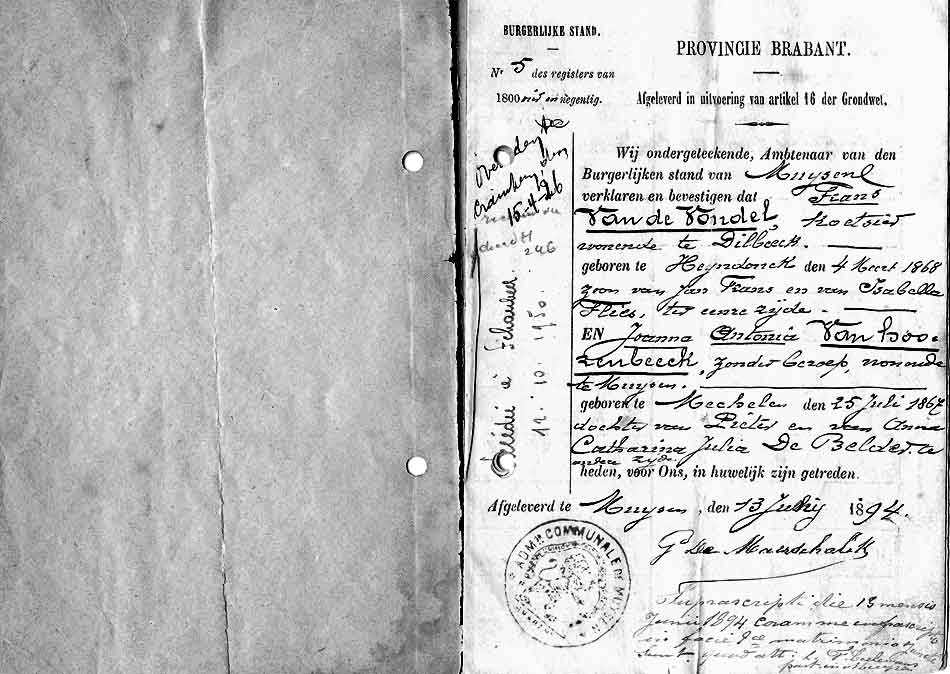 BURGERLIJKE STAND.
Nr 5 des registers van
1800 vier en negentig.
PROVINCIE BRABANT.
Afgeleverd in uitvoering van artikel 16 der Grondwet.
Wij ondergeteekende, Ambtenaar van den
Burgerlijken stand van Muysen
verklaren en bevestigen dat Frans
Van de Vondel, Koetsier
wonende te Dilbeeck.
geboren te Heyndonck den 4 Meert 1868
zoon van Jan Frans en van Isabella
Flies, ter eenre zijde.
EN Joanna Antonia Van hoo-
zenbeeck, zonder beroep, wonende
te Muysen.
geboren te Mechelen den 25 Juli 1867
dochter van Pieter en van Anna
Catharina Julia De Belder. te
andere zijde
heden, voor Ons, in huwelijk zijn getreden.
Afgeleverd te Muysen, den 13 Juny 1894.
G De Maerschalck
ADMON COMMUNALE DE MUYSEN
Supra scripti die 13 mensis
Junii 1894 coram me
in facie matrimonio
juncti
overleden
15-4-
246
Décédé à Schaerbeek
12.10.1950.